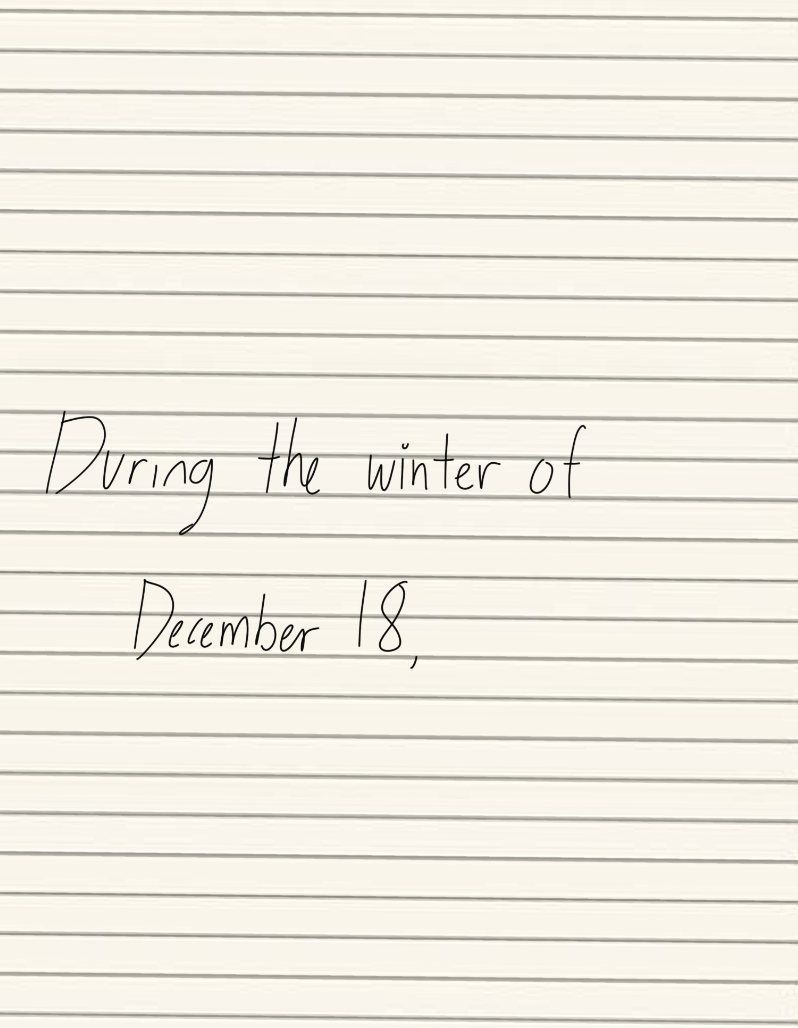 During the winter of
December 18,